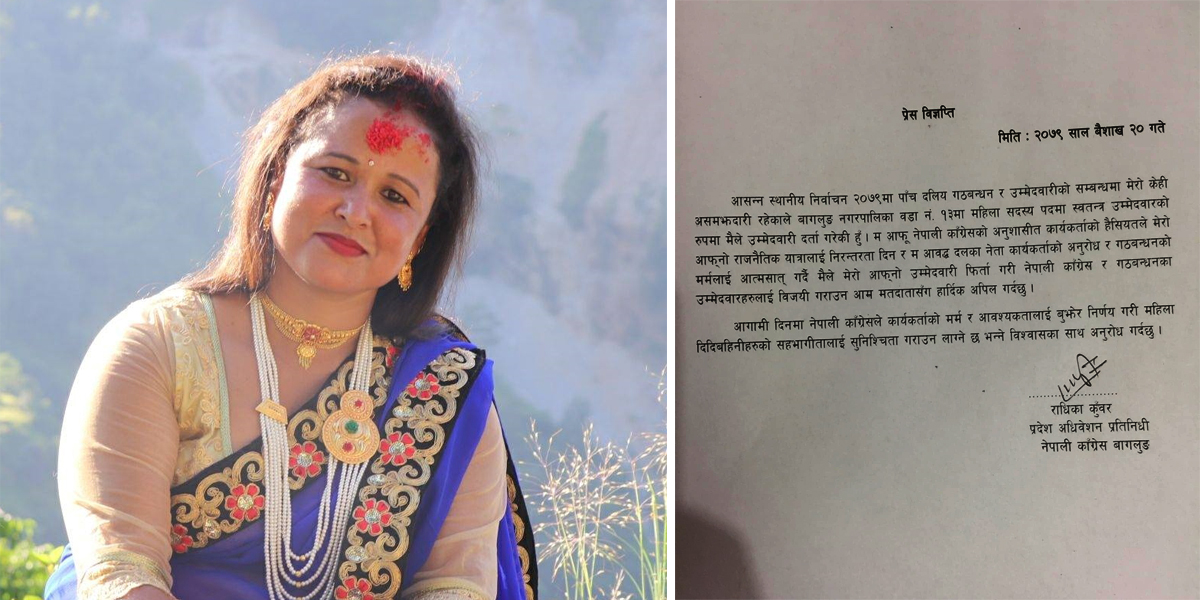 प्रेस विज्ञप्ति
मिति : २०७९ साल बैशाख २० गते
आसन्न स्थानीय निर्वाचन २०७९मा पाँच दलिय गठबन्धन र उम्मेदवारीको सम्बन्धमा मेरो केही
असमझदारी रहेकाले बागलुङ नगरपालिका वडा नं. १३मा महिला सदस्य पदमा स्वतन्त्र उम्मेदवारको
रुपमा मैले उम्मेदवारी दर्ता गरेकी हुँ । म आफू नेपाली काँग्रेसको अनुशासीत कार्यकर्ताको हैसियतले मेरो
आफ्नो राजनैतिक यात्रालाई निरन्तरता दिन र म आवद्ध दलका नेता कार्यकर्ताको अनुरोध र गठबन्धनको
मर्मलाई आत्मसात् गर्दै मैले मेरो आफ्नो उम्मेदवारी फिर्ता गरी नेपाली काँग्रेस र गठबन्धनका
उम्मेदवारहरुलाई विजयी गराउन आम मतदातासँग हार्दिक अपिल गर्दछु ।
आगामी दिनमा नेपाली काँग्रेसले कार्यकर्ताको मर्म र आवश्यकतालाई बुझेर निर्णय गरी महिला
दिदिबहिनीहरुको सहभागीतालाई सुनिश्चिता गराउन लाग्ने छ भन्ने विश्वासका साथ अनुरोध गर्दछु ।
राधिका कुँवर
प्रदेश अधिवेशन प्रतिनिधी
नेपाली काँग्रेस बागलुङ